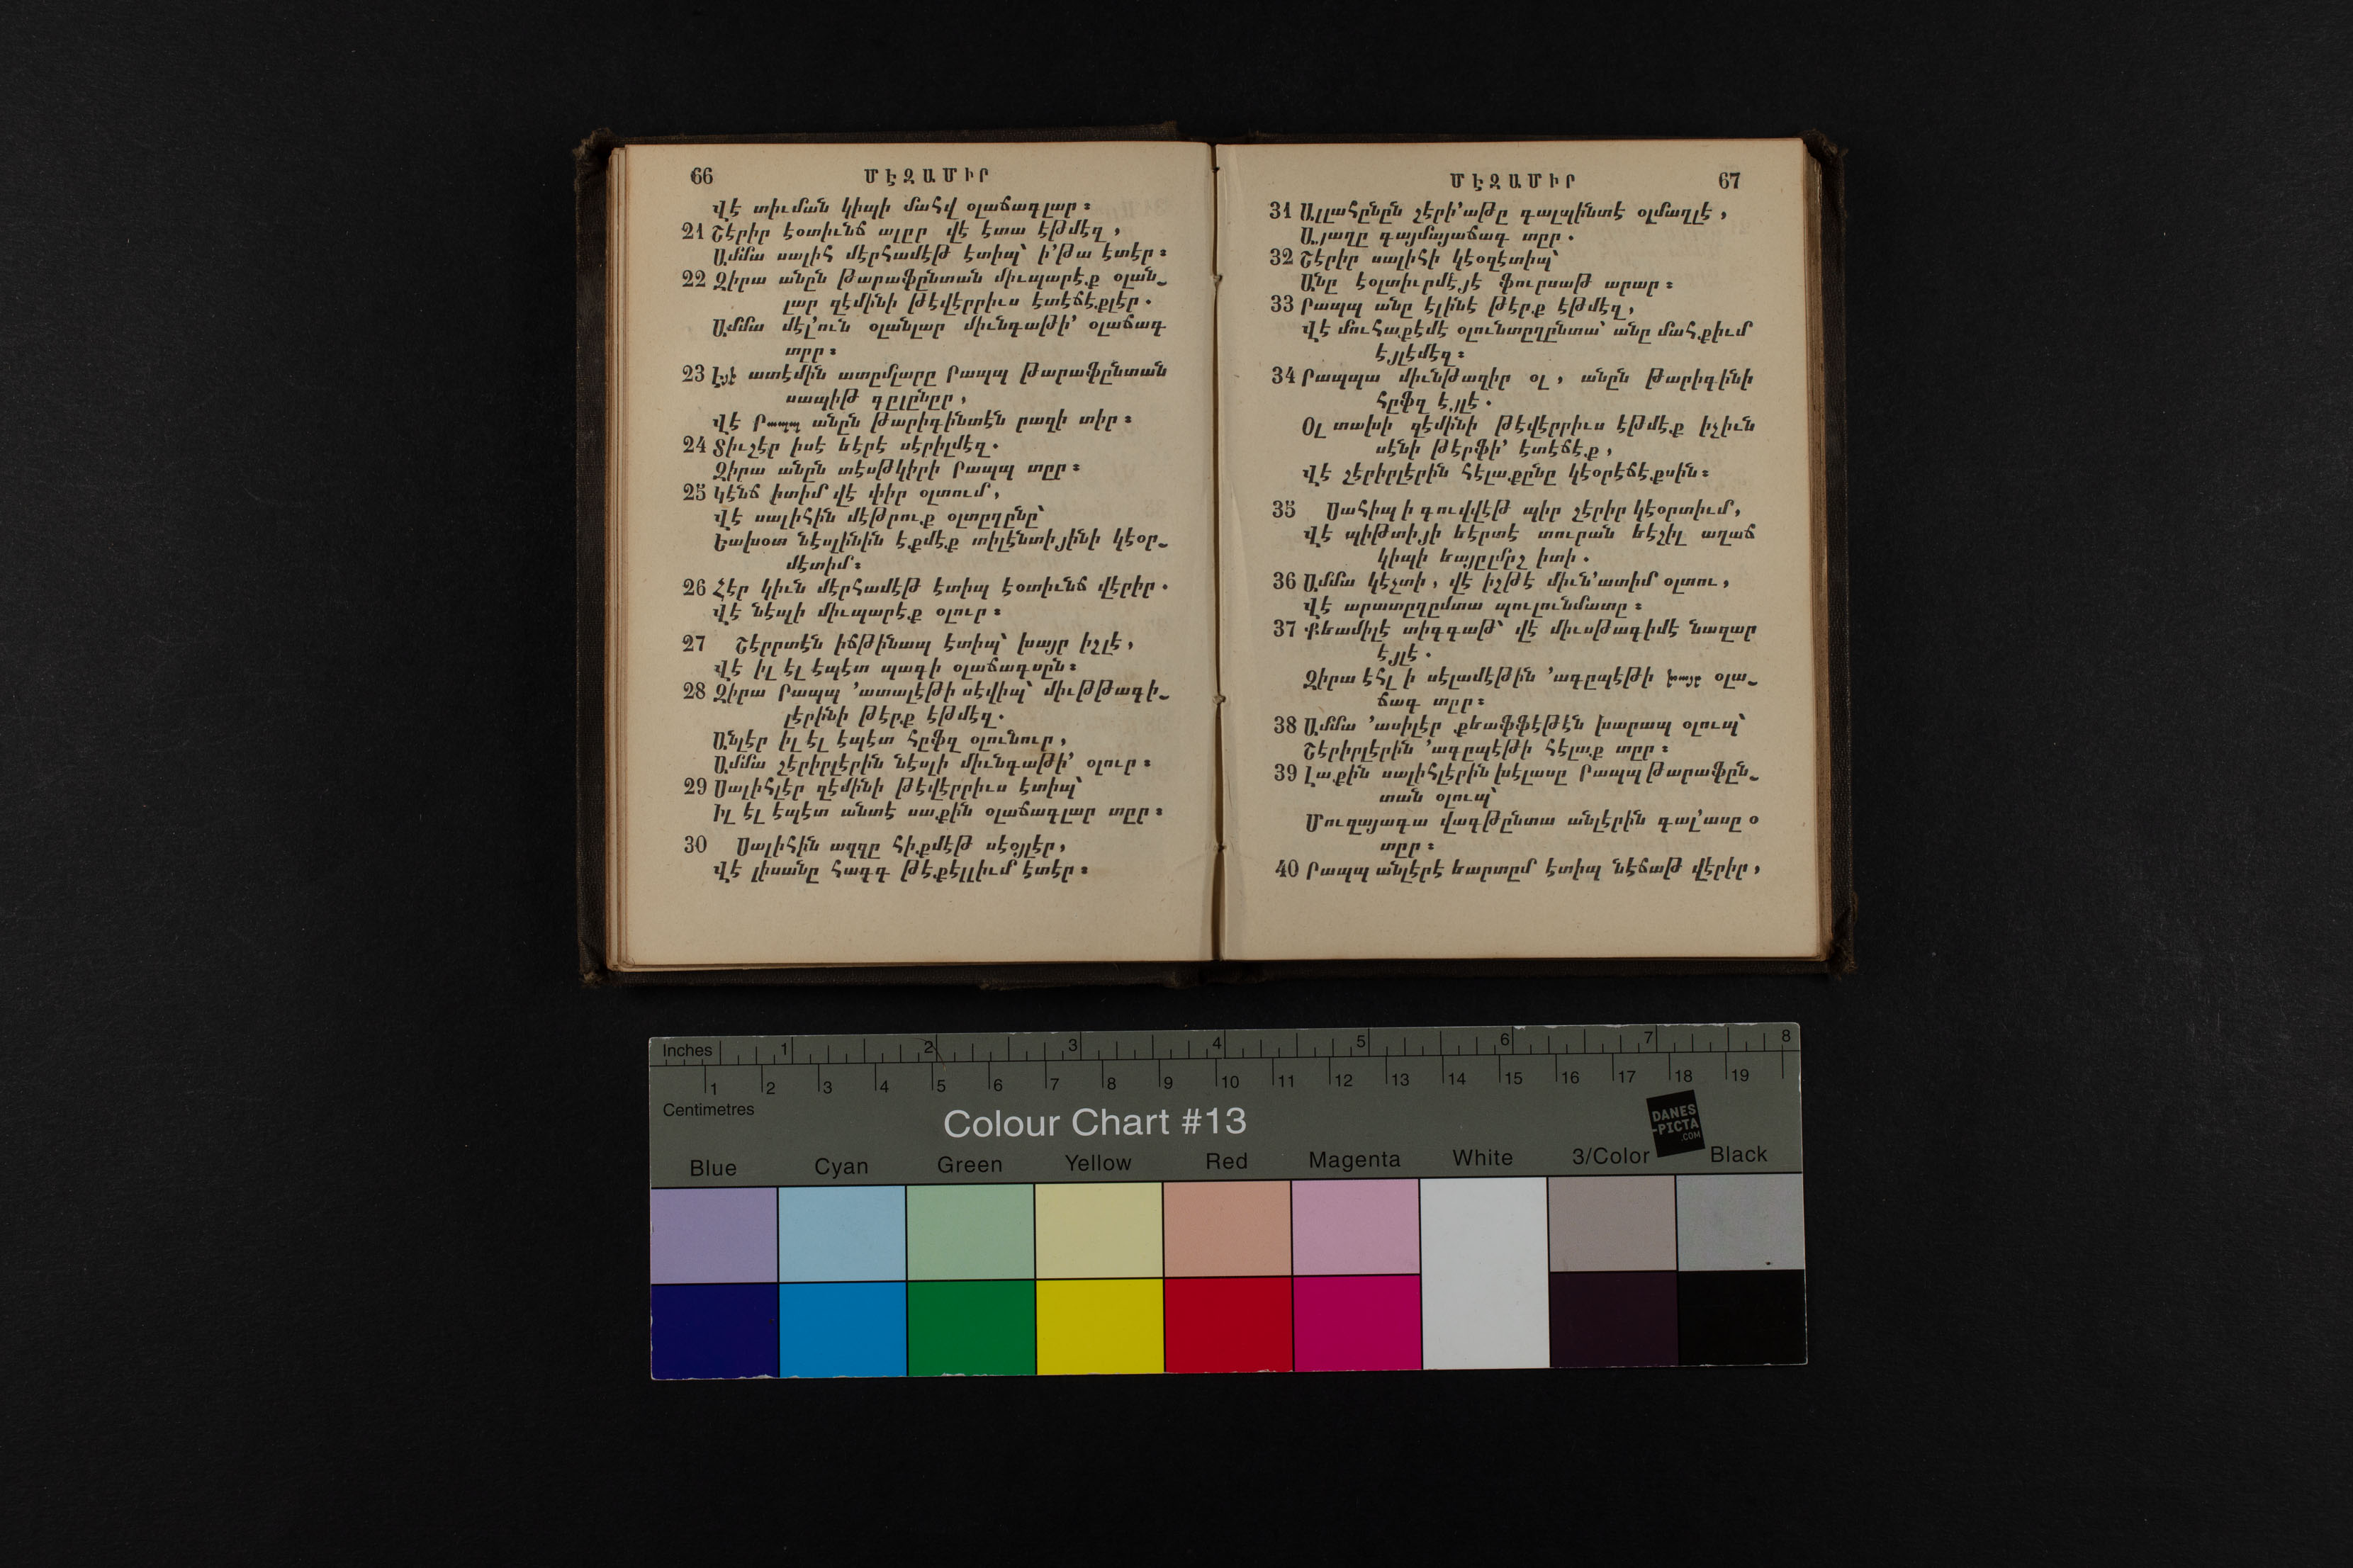 66 ՄԷԶԱՄԻՐ
Վէ տիւման կիպի մահվ օլաճագլար ։
21 Շէրիր էօտիւնճ ալըր վէ էտա էթմէզ ,
Ամմա սալիհ մէրհամէթ էտիպ՝ ի՚թա էտէր ։
22 Զիրա անըն թարաֆընտան միւպարէք օլան֊
լար զէմինի թէվէրրիւս էտէճէքլէր .
Ամմա մէլ՚ուն օլանլար միւնգաթի՚ օլաճագ
տըր ։
23 Էյէ ատէմին ատըմլարը Րապպ թարաֆընտան
սապիթ գըլընըր ,
Վէ Րապպ անըն թարիգինտէն րազի տիր ։
24 Տիւշէր իսէ եէրէ սէրիլմէզ .
Զիրա անըն տէսթկիրի Րապպ տըր ։
25 Կէնճ իտիմ վէ փիր օլտում ,
Վէ սալիհին մէթրուք օլտըղընը՝
Եախօտ նէսլինին էքմէք տիլէնտիյինի կէօր֊
մէտիմ ։
26 Հէր կիւն մէրհամէթ էտիպ էօտիւնճ վէրիր .
Վէ նէսլի միւպարէք օլուր ։
27 Շէրրտէն իճթինապ էտիպ՝ խայր իշլէ ,
Վէ իլ էլ էպէտ պագի օլաճագսըն ։
28 Զիրա Րապպ ՚ատալէթի սէվիպ՝ միւթթագի֊
լէրինի թէրք էթմէզ .
Անլէր իլ էլ էպէտ հըֆզ օլունուր ,
Ամմա շէրիրլէրին նէսլի միւնգաթի՚ օլուր ։
29 Սալիհլէր զէմինի թէվէրրիւս էտիպ՝
Իլ էլ էպէտ անտէ սաքին օլաճագլար տըր ։
30 Սալիհին աղզը հիքմէթ սէօյլէր ,
Վէ լիսանը հագգ թէքէլլիւմ էտէր ։
ՄԷԶԱՄԻՐ 67
31 Ալլահընըն շէրի՚աթը գալպինտէ օլմաղլէ ,
Այաղը գայմայաճագ տըր .
32 Շէրիր սալիհի կէօզէտիպ՝
Անը էօլտիւրմէյէ ֆուրսաթ արար ։
33 Րապպ անը էլինէ թէրք էթմէզ ,
Վէ մուհաքէմէ օլունտըղընտա՝ անը մահքիւմ
էյլէմէզ ։
34 Րապպա միւնթազիր օլ , անըն թարիգինի
հըֆզ էյլէ .
Օլ տախի զէմինի թէվէրրիւս էթմէք իչիւն
սէնի թէրֆի՚ էտէճէք ,
Վէ շէրիրլէրին հէլաքընը կէօրէճէքսին ։
35 Սահիպ ի գուվվէթ պիր շէրիր կէօրտիւմ ,
Վէ պիթտիյի եէրտէ տուրան եէշիլ աղաճ
կիպի եայըլմըշ իտի .
36 Ամմա կէչտի , վէ իշթէ միւն՚ատիմ օլտու ,
Վէ արատըղըմտա պուլունմատը ։
37 Քեամիլէ տիգգաթ՝ վէ միւսթագիմէ նազար
էյլէ .
Զիրա էհլ ի սէլամէթին ՚ագըպէթի խայր օլա֊
ճագ տըր ։
38 Ամմա ՚ասիլէր քեաֆֆէթէն խարապ օլուպ՝
Շէրիրլէրին ՚ագըպէթի հէլաք տըր ։
39 Լաքին սալիհլէրին խէլասը Րապպ թարաֆըն֊
տան օլուպ՝
Մուզայագա վագթընտա անլէրին գալ՚ասը օ
տըր ։
40 Րապպ անլէրէ եարտըմ էտիպ նէճաթ վէրիր ,
Inches 1 2 3 4 5 6 7 8
1 2 3 4 5 6 7 8 9 10 11 12 13 14 15 16 17 18 19
Centimetres
Colour Chart #13
DANES
-PICTA
.COM
Blue Cyan Green Yellow Red Magenta White 3/Color Black